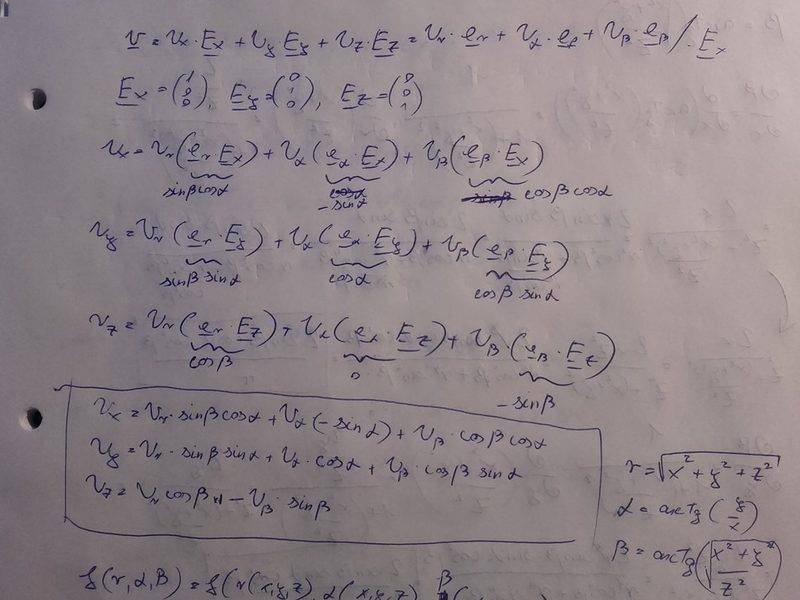 v = v_x · E_x + v_y E_y + v_z · E_z = v_r · e_r + v_α · e_α + v_β · e_β / · E_x
E_x = (1 0 0), E_y = (0 1 0), E_z = (0 0 1)
v_x = v_r (e_r · E_x) + v_α (e_α · E_x) + v_β (e_β · E_x)
sinβ cosα   cosα   sinβ   cosβ cosα
- sinα
v_y = v_r (e_r · E_y) + v_α (e_α · E_y) + v_β (e_β · E_y)
sinβ sinα   cosα   cosβ sinα
v_z = v_r (e_r · E_z) + v_α (e_α · E_z) + v_β · (e_β · E_z)
cosβ   0   - sinβ
v_x = v_r · sinβ cosα + v_α (- sinα) + v_β · cosβ cosα
v_y = v_r · sinβ sinα + v_α · cosα + v_β · cosβ sinα
v_z = v_r cosβ - v_β · sinβ
r = √(x² + y² + z²)
α = arctg (y/x)
β = arctg (√((x² + y²)/z²))
f(r, α, β) = f(r(x, y, z), α(x, y, z), β